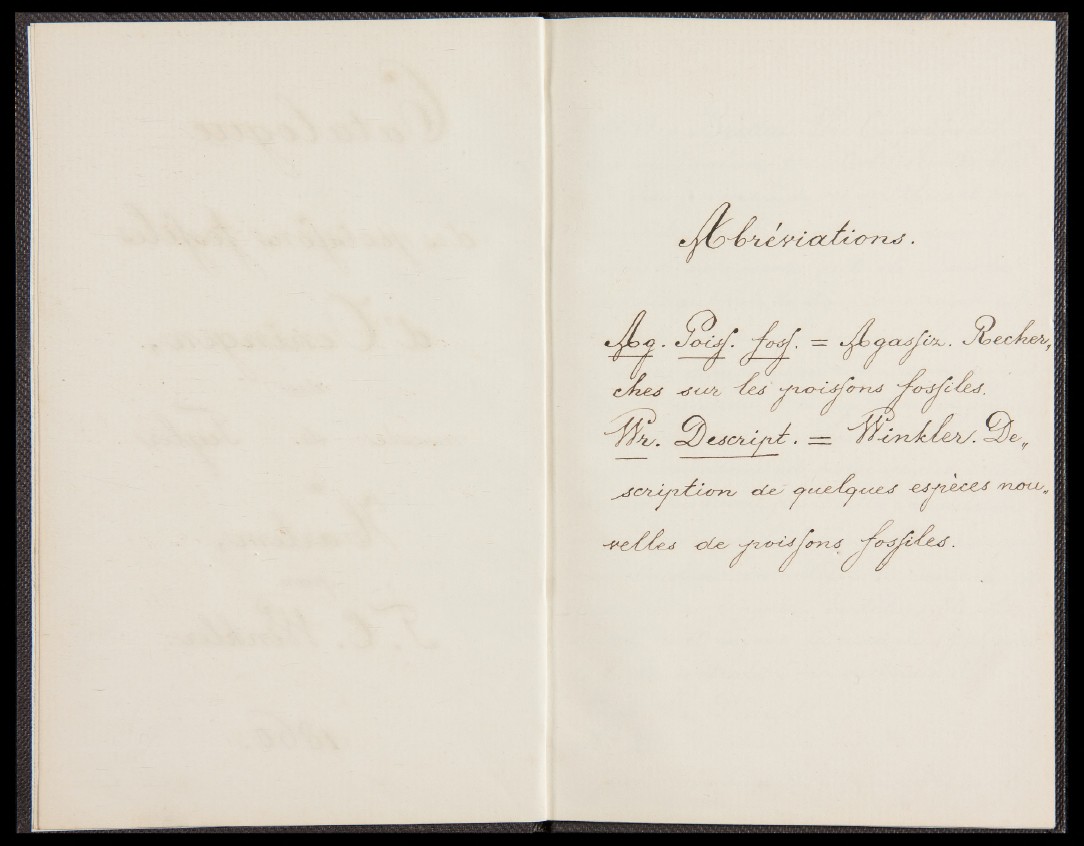 Abréviations.
Ag. Poiss. foss. = Agassiz. Recher„
ches sur les poissons fossiles.
Wr. Descript. = Winkler. De„
scription de quelques espèces nou„
velles de poissons fossiles.